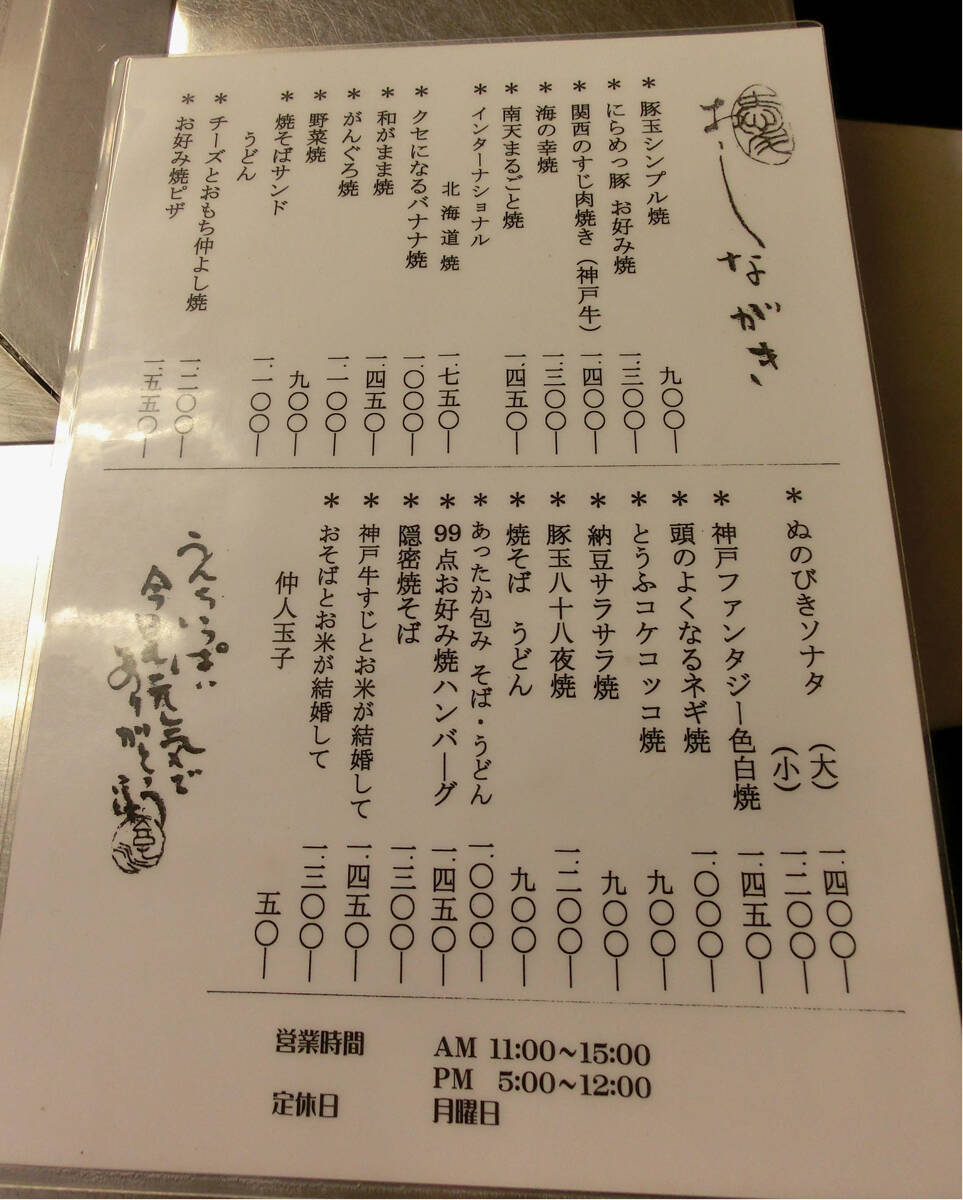 おしながき
＊ 豚玉シンプル焼 九〇〇ー
＊ にらめっ豚 お好み焼 一.三〇〇ー
＊ 関西のすじ肉焼き（神戸牛） 一.四〇〇ー
＊ 海の幸焼 一.三〇〇ー
＊ 南天まるごと焼 一.四五〇ー
＊ インターナショナル
北海道焼 一.七五〇ー
＊ クセになるバナナ焼 一.〇〇〇ー
＊ 和がまま焼 一.四五〇ー
＊ がんぐろ焼 一.一〇〇ー
＊ 野菜焼 九〇〇ー
＊ 焼そばサンド
うどん 一.一〇〇ー
＊ チーズとおもち仲よし焼 一.二〇〇ー
＊ お好み焼ピザ 一.五五〇ー
＊ ぬのびきソナタ （大） 一.四〇〇ー
（小） 一.二〇〇ー
＊ 神戸ファンタジー色白焼 一.四五〇ー
＊ 頭のよくなるネギ焼 一.〇〇〇ー
＊ とうふコケコッコ焼 九〇〇ー
＊ 納豆サラサラ焼 九〇〇ー
＊ 豚玉八十八夜焼 一.二〇〇ー
＊ 焼そば うどん 九〇〇ー
＊ あったか包み そば・うどん 一.〇〇〇ー
＊ 99点お好み焼ハンバーグ 一.四五〇ー
＊ 隠密焼そば 一.三〇〇ー
＊ 神戸牛すじとお米が結婚して 一.四五〇ー
＊ おそばとお米が結婚して 一.三〇〇ー
仲人玉子 五〇ー
いっぱい
今日も元気で
ありがとう
営業時間 AM 11:00～15:00
PM 5:00～12:00
定休日 月曜日